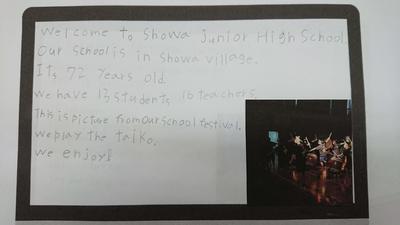 Welcome to Showa Junior High School.
Our school is in Showa village.
Its 72 years old.
we have 13 students 16 teachers.
This is picture from our school festival.
we play the taiko.
we enjoy!